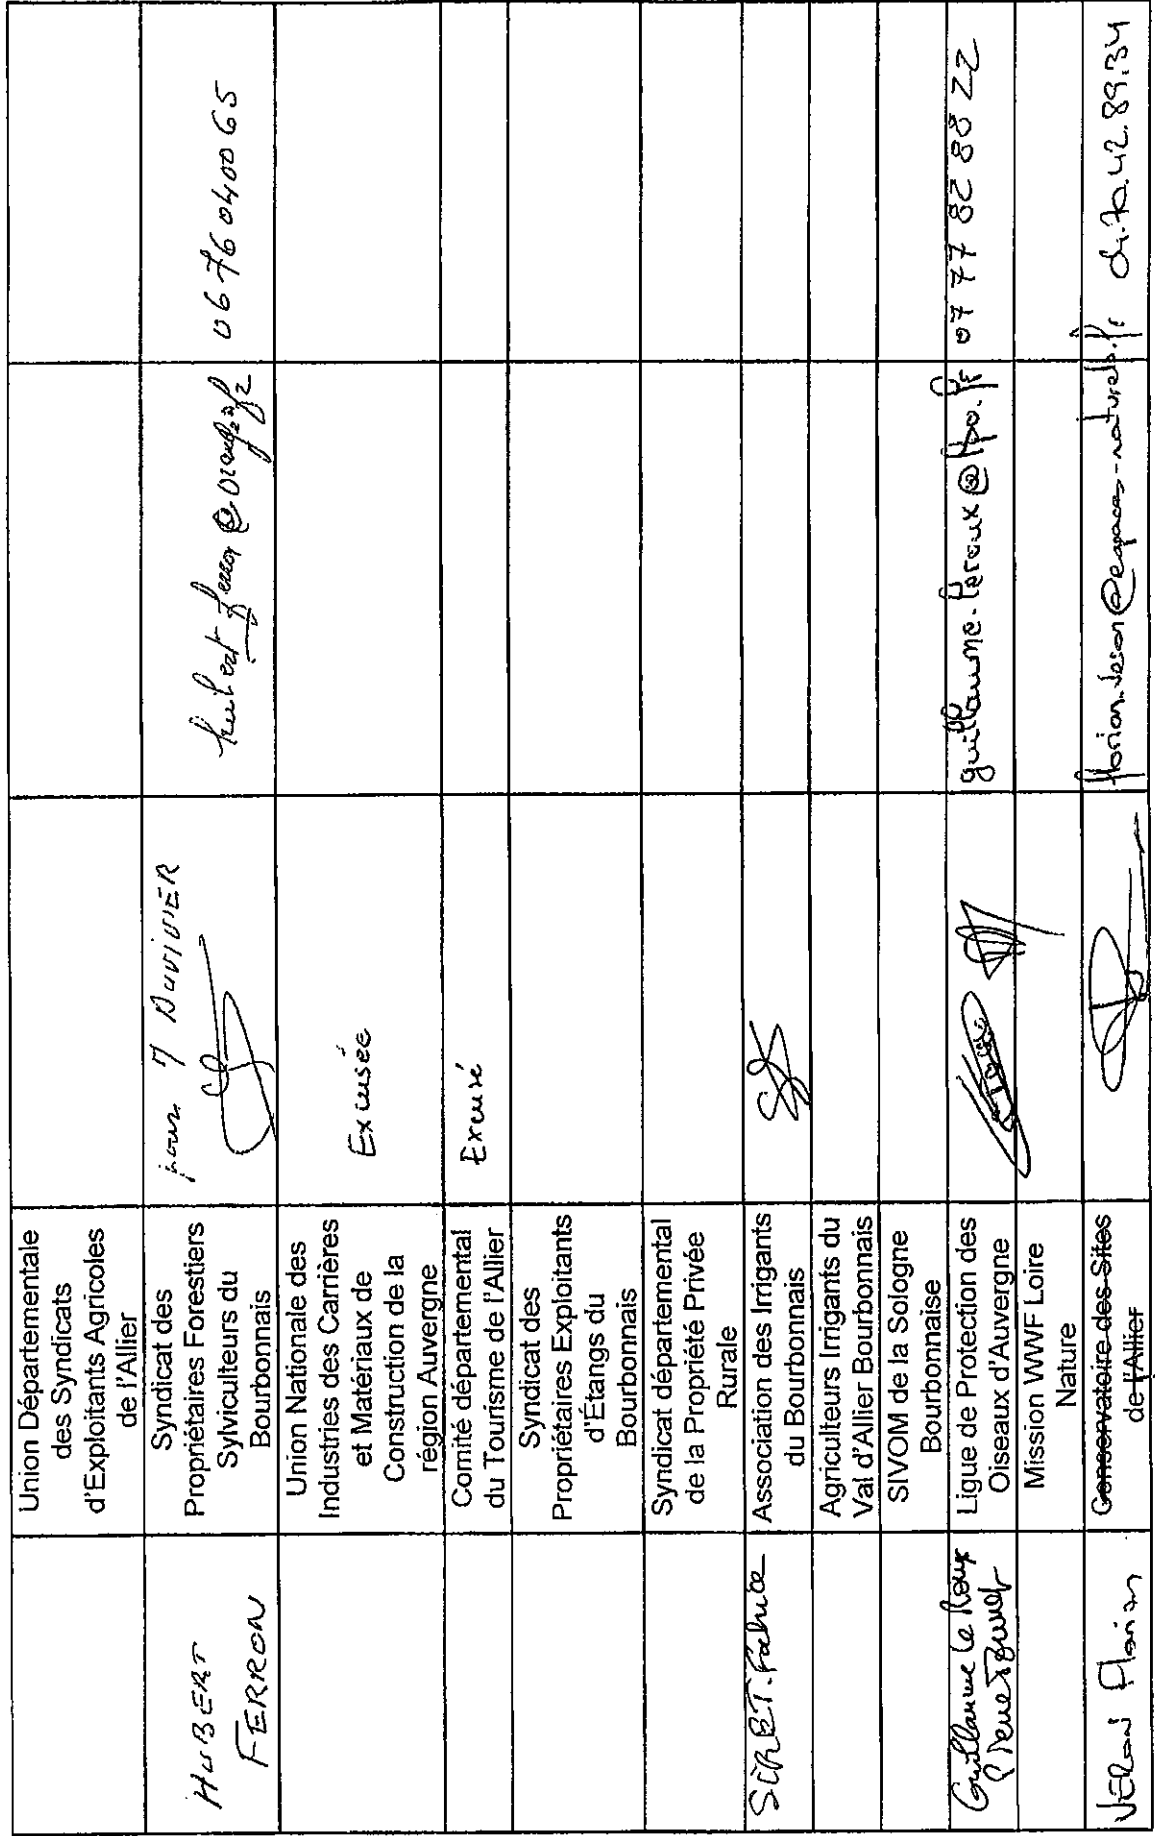 Union Départementale
des Syndicats
d'Exploitants Agricoles
de l'Allier
HUBERT
FERRON
Syndicat des
Propriétaires Forestiers
Sylviculteurs du
Bourbonnais
pour DUVIVIER
hubert.ferron@orange.fr
06 76 04 00 65
Union Nationale des
Industries des Carrières
et Matériaux de
Construction de la
région Auvergne
Excusée
Comité départemental
du Tourisme de l'Allier
Excusé
Syndicat des
Propriétaires Exploitants
d'Étangs du
Bourbonnais
Syndicat départemental
de la Propriété Privée
Rurale
SIRET. Fabrice
Association des Irrigants
du Bourbonnais
Agriculteurs Irrigants du
Val d'Allier Bourbonnais
SIVOM de la Sologne
Bourbonnaise
Guillaume Le Roux
Pierre
Ligue de Protection des
Oiseaux d'Auvergne
guillaume.leroux@lpo.fr
07 77 82 88 22
Mission WWF Loire
Nature
VÉRON Florian
Conservatoire des Sites
de l'Allier
florian.veron@espaces-naturels.fr
04.70.42.89.34